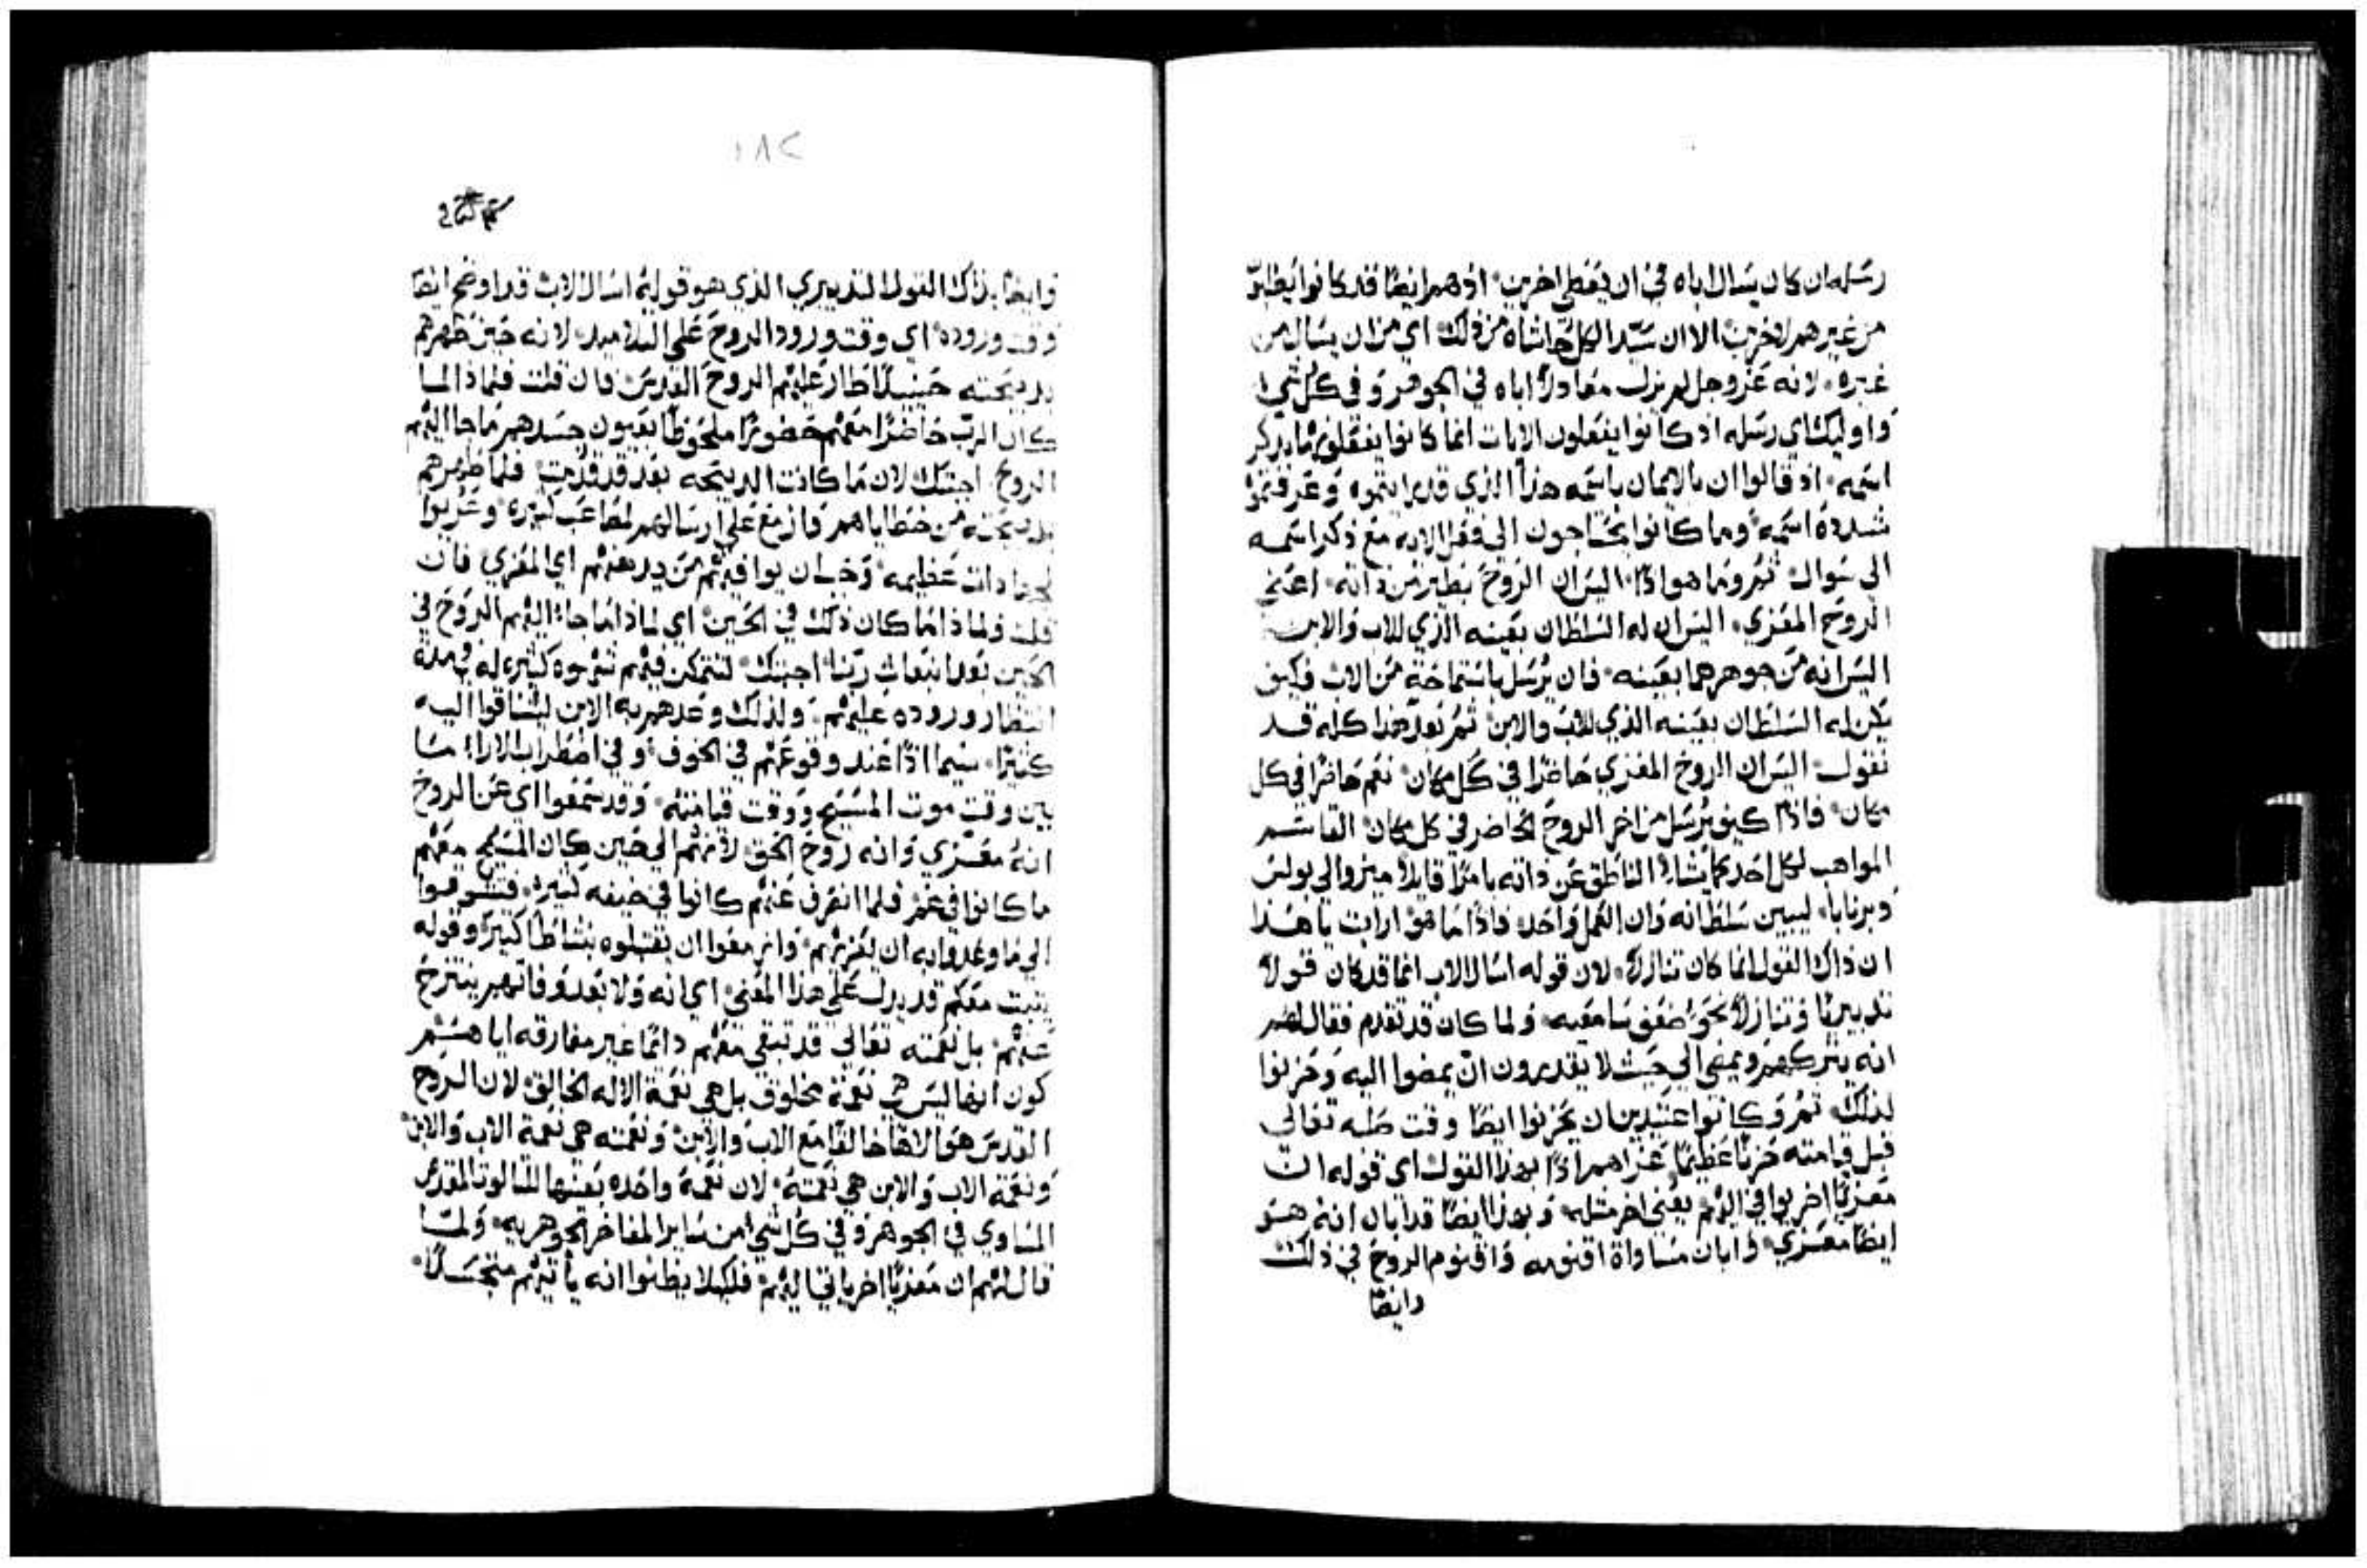 رسله ان كان يسال اباه في ان يعطي اخرين اذ هم ايضًا قد كانوا
من غيرهم لاخرين الا ان سيد الكل حاشاه من ذلك اي من ان يسال من
غيره لانه عز وجل لم يزل معادلاً اباه في الجوهر وفي كل شي
واوليك اي رسله اذ كانوا يفعلون الايات انما كانوا يفعلونها بذكر
اسمه اذ قالوا ان بالايمان باسمه هذا الذي قد رايتموه وعرفتموه
شدده اسمه وما كانوا يحتاجون الي فعل الايه مع ذكر اسمه
الي سوال ثم وما هو اذًا اليس ان الروح نظير من ذاته اعني
الروح المعزي اليس ان له السلطان بعينه الذي للاب والابن
اليس انه من جوهرهما بعينه فان يرسل باستماحة من الاب فكيف
يكن له السلطان بعينه الذي للاب والابن ثم بعد هذا كله قد
نقول اليس ان الروح المعزي حاضرًا في كل مكان نعم حاضرًا في كل
مكان فاذًا كيف يرسل من اخر الروح الحاضر في كل مكان القاسم
المواهب لكل احد كما يشا الناطق عن ذاته بامرًا قايلاً ميزوا لي بولس
وبرنابا ليبين سلطانه وان العمل واحد فاذًا ما هو ارايت يا هذا
ان ذاك القول انما كان تنازلاً لان قوله اسال الاب انما قد كان قولاً
تدبيريًا وتنازلاً نحو ضعف سامعيه ولما كان قد تقدم فقال لهم
انه يتركهم ويمضي الي حيث لا يقدرون ان يمضوا اليه وحزنوا
لذلك ثم وكانوا عتيدين ان يحزنوا ايضًا وقت صلبه تعالي
قبل قيامته حزنًا عظيمًا عزاهم اذًا بهذا القول اي قوله ان
معزيًا اخر يوافي اليهم يعني اخر مثله وبهذا ايضًا قد ابان انه هو
ايضًا معزي وابان مساواة اقنومه واقنوم الروح في ذلك
وايضًا
١٨٢
وايضًا بذاك القول التدبيري الذي هو قوله اسال الاب قد اوضح ايضًا
وقت وروده اي وقت ورود الروح علي التلاميد لانه حين طهرهم
بدبيحته حينيدًا طار عليهم الروح القدس فان قلت فلماذا لما
كان الرب حاضرًا معهم حضورًا ملحوظًا بعيون جسدهم ما جا اليهم
الروح اجبتك لان ما كانت الدبيحه بعد قد قدمت فلما طهرهم
بدبيحته من خطاياهم وازمع علي ارسالهم لمصاعب كثيره وعزموا
عظيمه وجب ان يوافيهم من يدهنهم اي المعزي فان
قلت ولماذا ما كان ذلك في الحين اي لماذا ما جا اليهم الروح في
الحين بعد انبعاث ربنا اجبتك لتتمكن فيهم شهوه كثيره له بمدة
انتظار وروده عليهم ولذلك وعدهم به الابن ليشتاقوا اليه
كثيرًا سيما اذًا عند وقوعهم في الخوف وفي اضطراب الارا ما
بين وقت موت المسيح ووقت قيامته وقد سمعوا اي عن الروح
انه معزي وانه روح الحق لانهم الي حين كان المسيح معهم
ما كانوا في غم فلما انصرف عنهم كانوا في ضيقه كثيره فتشوقوا
الي ما وعدوا به ان يعزيهم وازمعوا ان يقتبلوه بنشاطًا كبير وقوله
يثبت معكم قد يدل علي هذا المعني اي انه ولا بعد وفاتهم ينتزح
عنهم بل نعمته تعالي قد تبقي معهم دائمًا غير مفارقه اياهم
كون انها ليس هي نعمة مخلوق بل هي نعمة الاله الخالق لان الروح
القدس هو الاهًا خالقًا مع الاب والابن ونعمته هي نعمة الاب والابن
ونعمة الاب والابن هي نعمته لان نعمة واحده بعينها للثالوث المقدس
المساوي في الجوهر وفي كل شي من ساير المفاخر الجوهريه ولما
قال لهم ان معزيًا اخر ياتي اليهم فلكيلا يظنوا انه ياتيهم متجسدًا